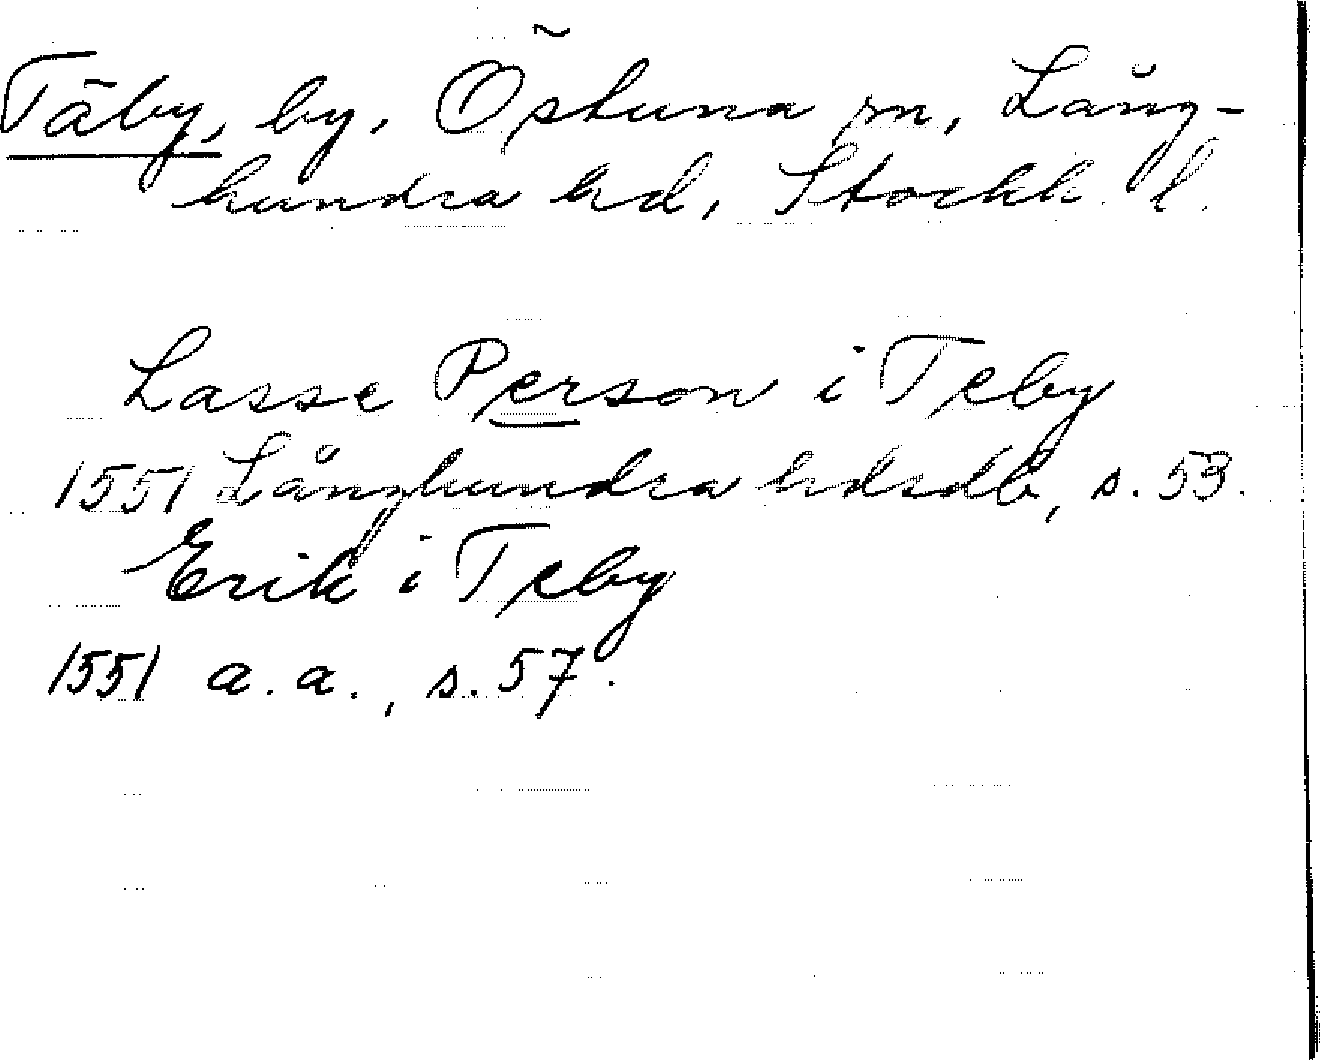 Täby, by, Östuna sn, Lång-
hundra hd, Stockh. l.
Lasse Person i Teby
1551 Långhundra hdsdb, s. 53.
Erik i Teby
1551 a.a., s. 57.